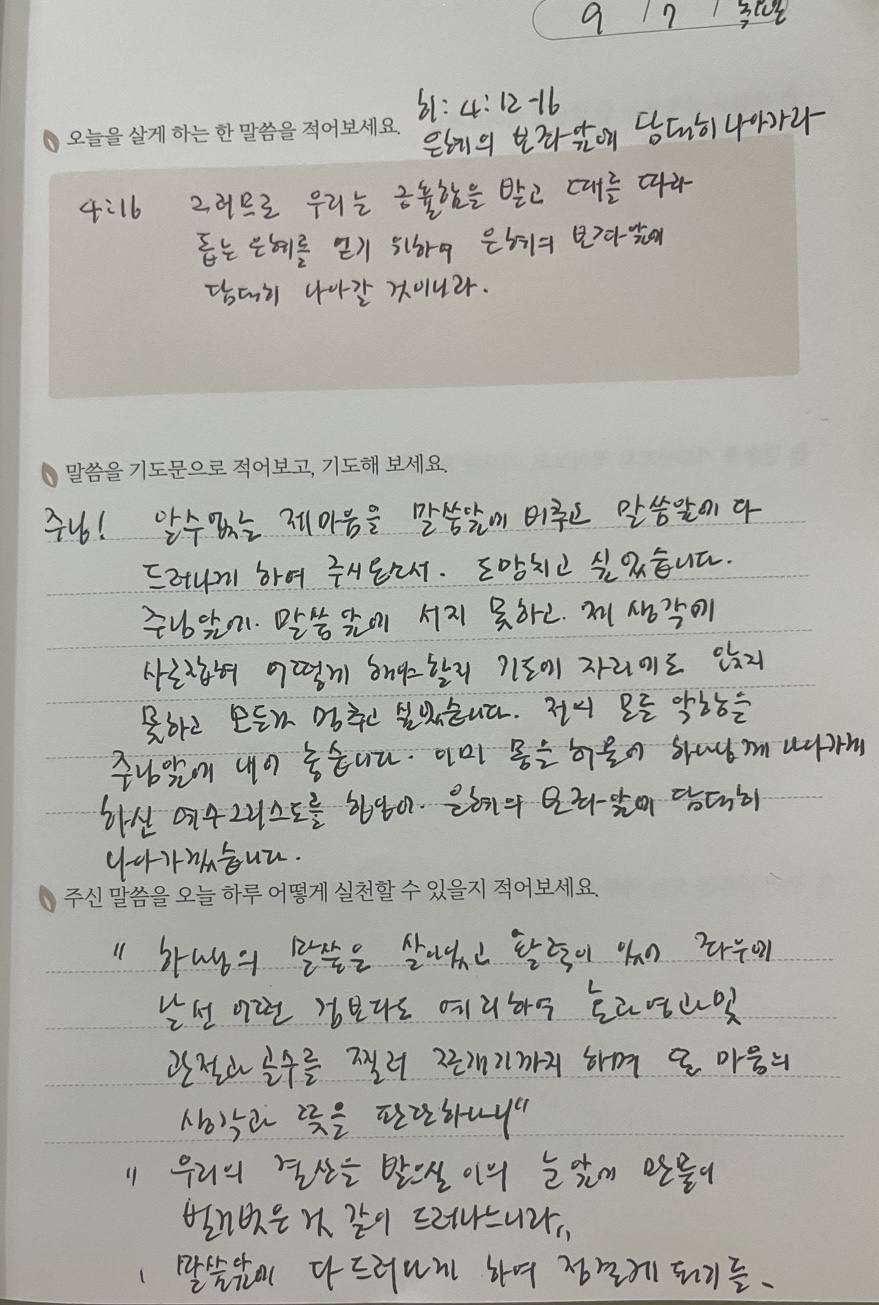 9 / 7 /
히: 4:12-16
오늘을 살게 하는 한 말씀을 적어보세요.
은혜의 보좌앞에 담대히 나아가라
4:16 그러므로 우리는 긍휼함을 받고 때를 따라
돕는 은혜를 얻기 위하여 은혜의 보좌앞에
담대히 나아갈 것이니라.
말씀을 기도문으로 적어보고, 기도해 보세요.
주님! 알수없는 제마음을 말씀앞에 비추고 말씀앞에 다
드러나게 하여 주시옵소서. 도망치고 싶었습니다.
주님앞에. 말씀앞에 서지 못하고. 제 생각에
사로잡혀 어떻게 해야할지 기도에 자리에도 앉지
못하고 모든걸 멈추고 싶었습니다. 저의 모든 악함을
주님앞에 내어 놓습니다. 이미 몸을 허물어 하나님께 나아가게
하신 예수그리스도를 힘입어. 은혜의 보좌앞에 담대히
나아가겠습니다.
주신 말씀을 오늘 하루 어떻게 실천할 수 있을지 적어보세요.
" 하나님의 말씀은 살아있고 활력이 있어 좌우에
날선 어떤 검보다도 예리하여 혼과영과및
관절과 골수를 찔러 쪼개기까지 하며 또 마음의
생각과 뜻을 판단하나니"
" 우리의 결산을 받으실 이의 눈앞에 만물이
벌거벗은 것 같이 드러나느니라"
말씀앞에 다 드러나게 하여 정결케 되기를